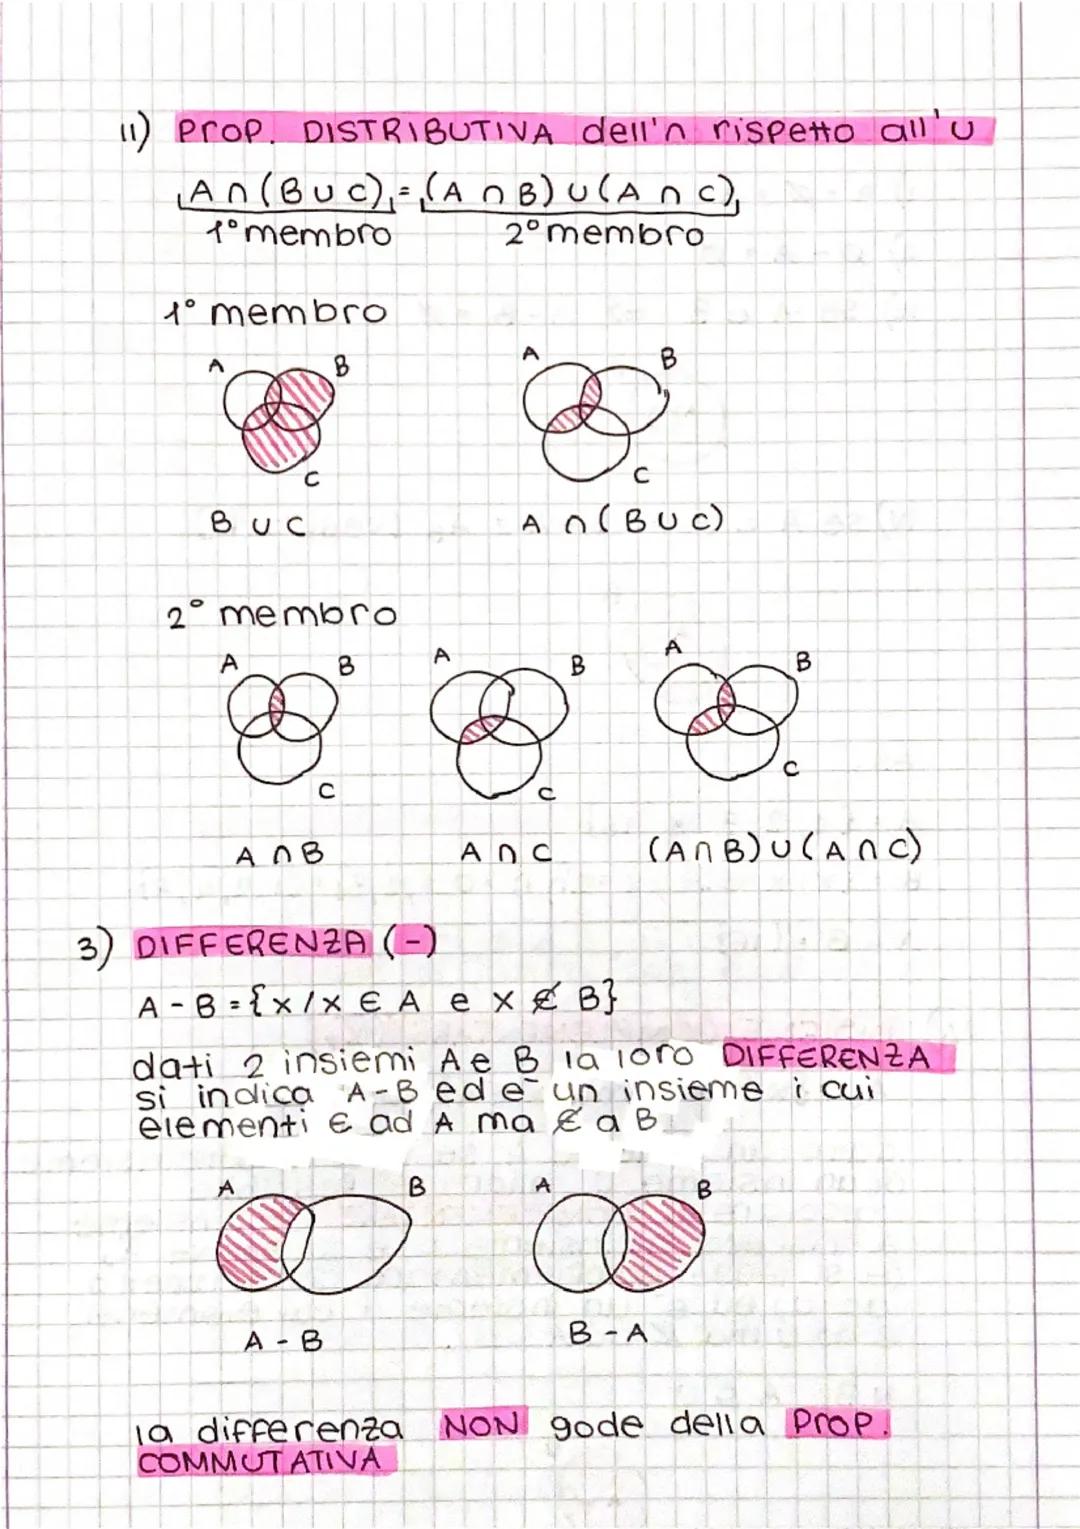 11) Prop. DISTRIBUTIVA dell'∩ rispetto all'∪
A ∩ (B ∪ C) = (A ∩ B) ∪ (A ∩ C)
1° membro 2° membro
1° membro
A B C A B C
B ∪ C A ∩ (B ∪ C)
2° membro
A B C A B C A B C
A ∩ B A ∩ C (A ∩ B) ∪ (A ∩ C)
3) DIFFERENZA (-)
A - B = {x / x ∈ A e x ∉ B}
dati 2 insiemi A e B la loro DIFFERENZA
si indica A - B ed è un insieme i cui
elementi ∈ ad A ma ∉ a B
A B A B
A - B B - A
la differenza NON gode della Prop.
COMMUTATIVA